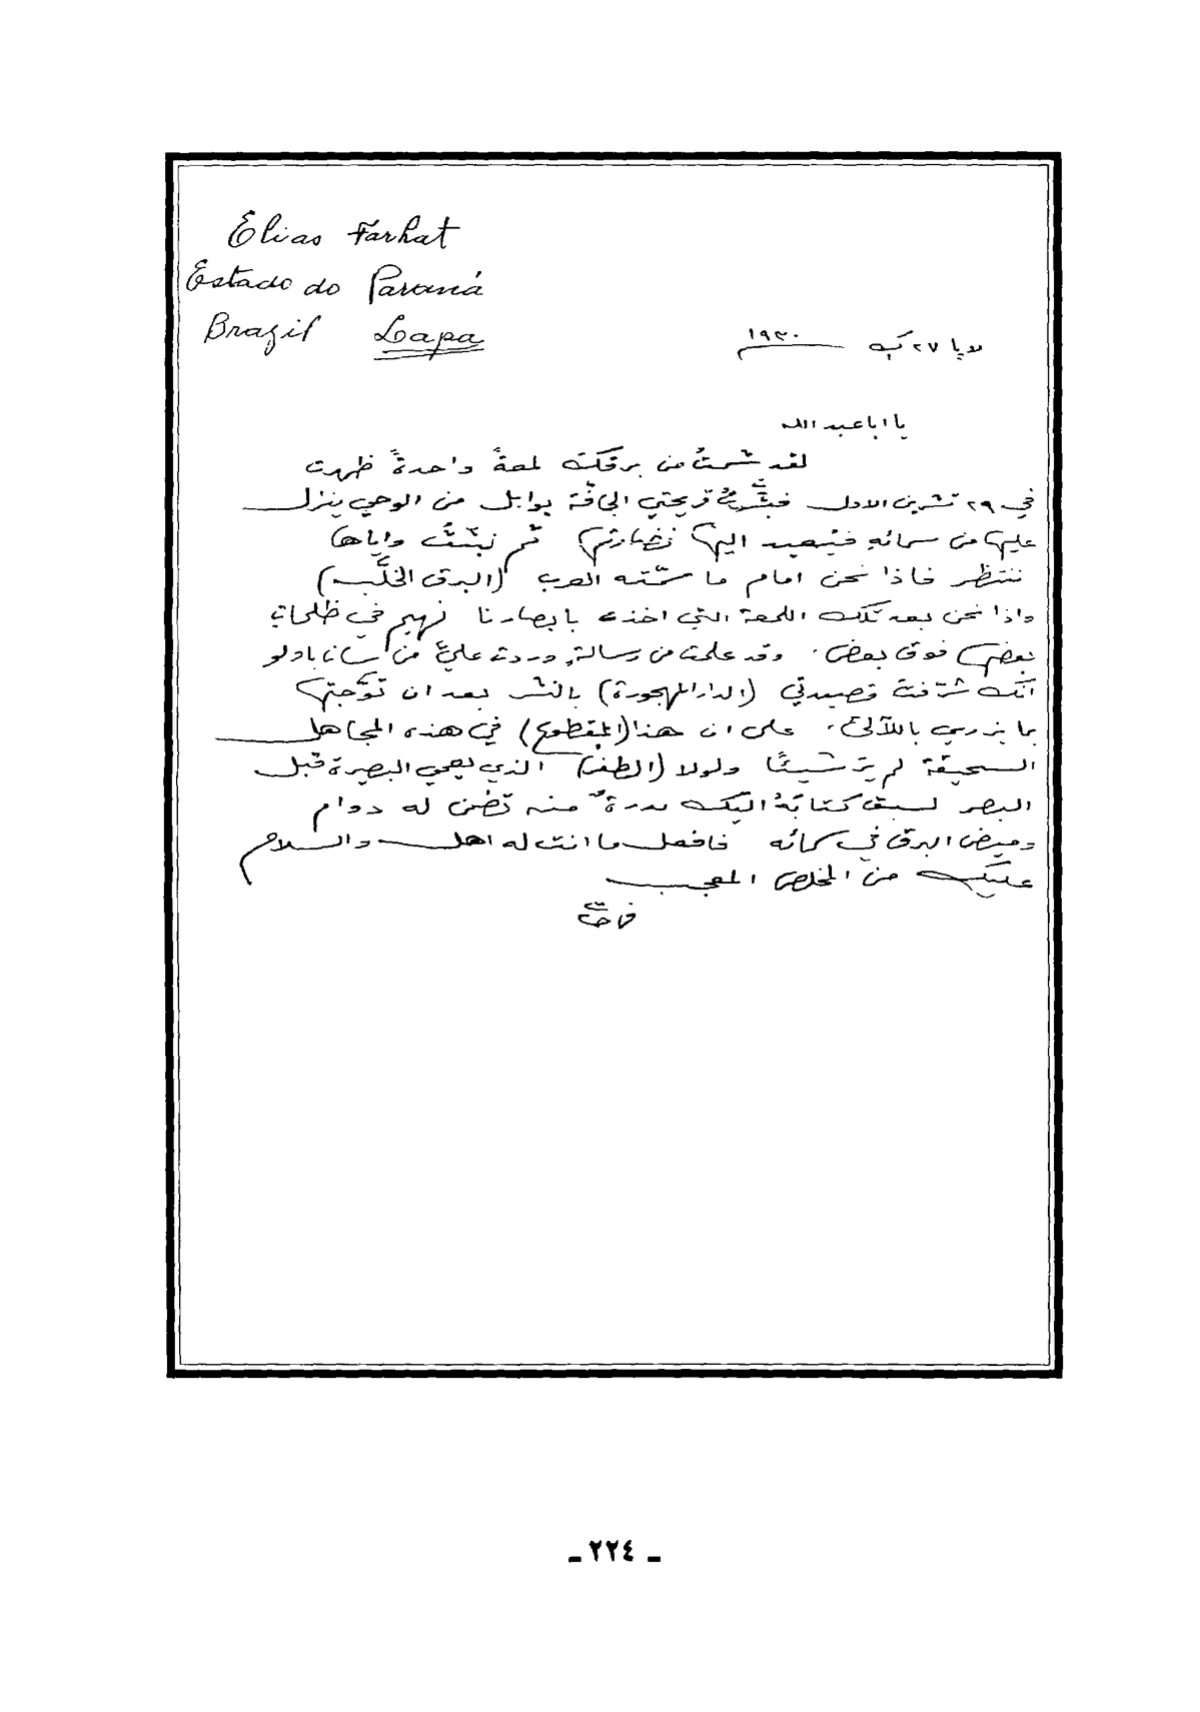 Elias Farhat
Estado do Paraná
Brazil Lapa
لاپا ٢٧ ك ١٩٣٠
يا ابا عبد الله
لقد شمتُ من برقك لمعةً واحدةً ظهرت
في ٢٩ تشرين الاول فبشّرتُ قريحتي الجافّة بوابل من الوحي ينزل
عليها من سمائه فيعيد اليها نضارتها ثم نبتّتُ واياها
ننتظر فاذا نحن امام ما سمّته العرب (البرق الخلَّب)
واذا نحن بعد تلك اللمعة التي اخذت بابصارنا نهيم في ظلمات
بعضها فوق بعض. وقد علمت من رسالةٍ وردت عليّ من سان باولو
انك شرّفت قصيدتي (الدار المهجورة) بالنشر بعد ان توّجتها
بما يزري باللآلئ. على ان هذا (المقطوع) في هذه المجاهل
السحيقة لم يرَ شيئًا ولولا (الطفر) الذي يعمي البصيرة قبل
البصر لسبق كتابَهُ اليك بدرةٌ منه تضمن له دوام
وميض البرق في سمائه فافعل ما انت له اهل والسلام
عليك من المخلص المعجب
فرحات
- ٢٢٤ -